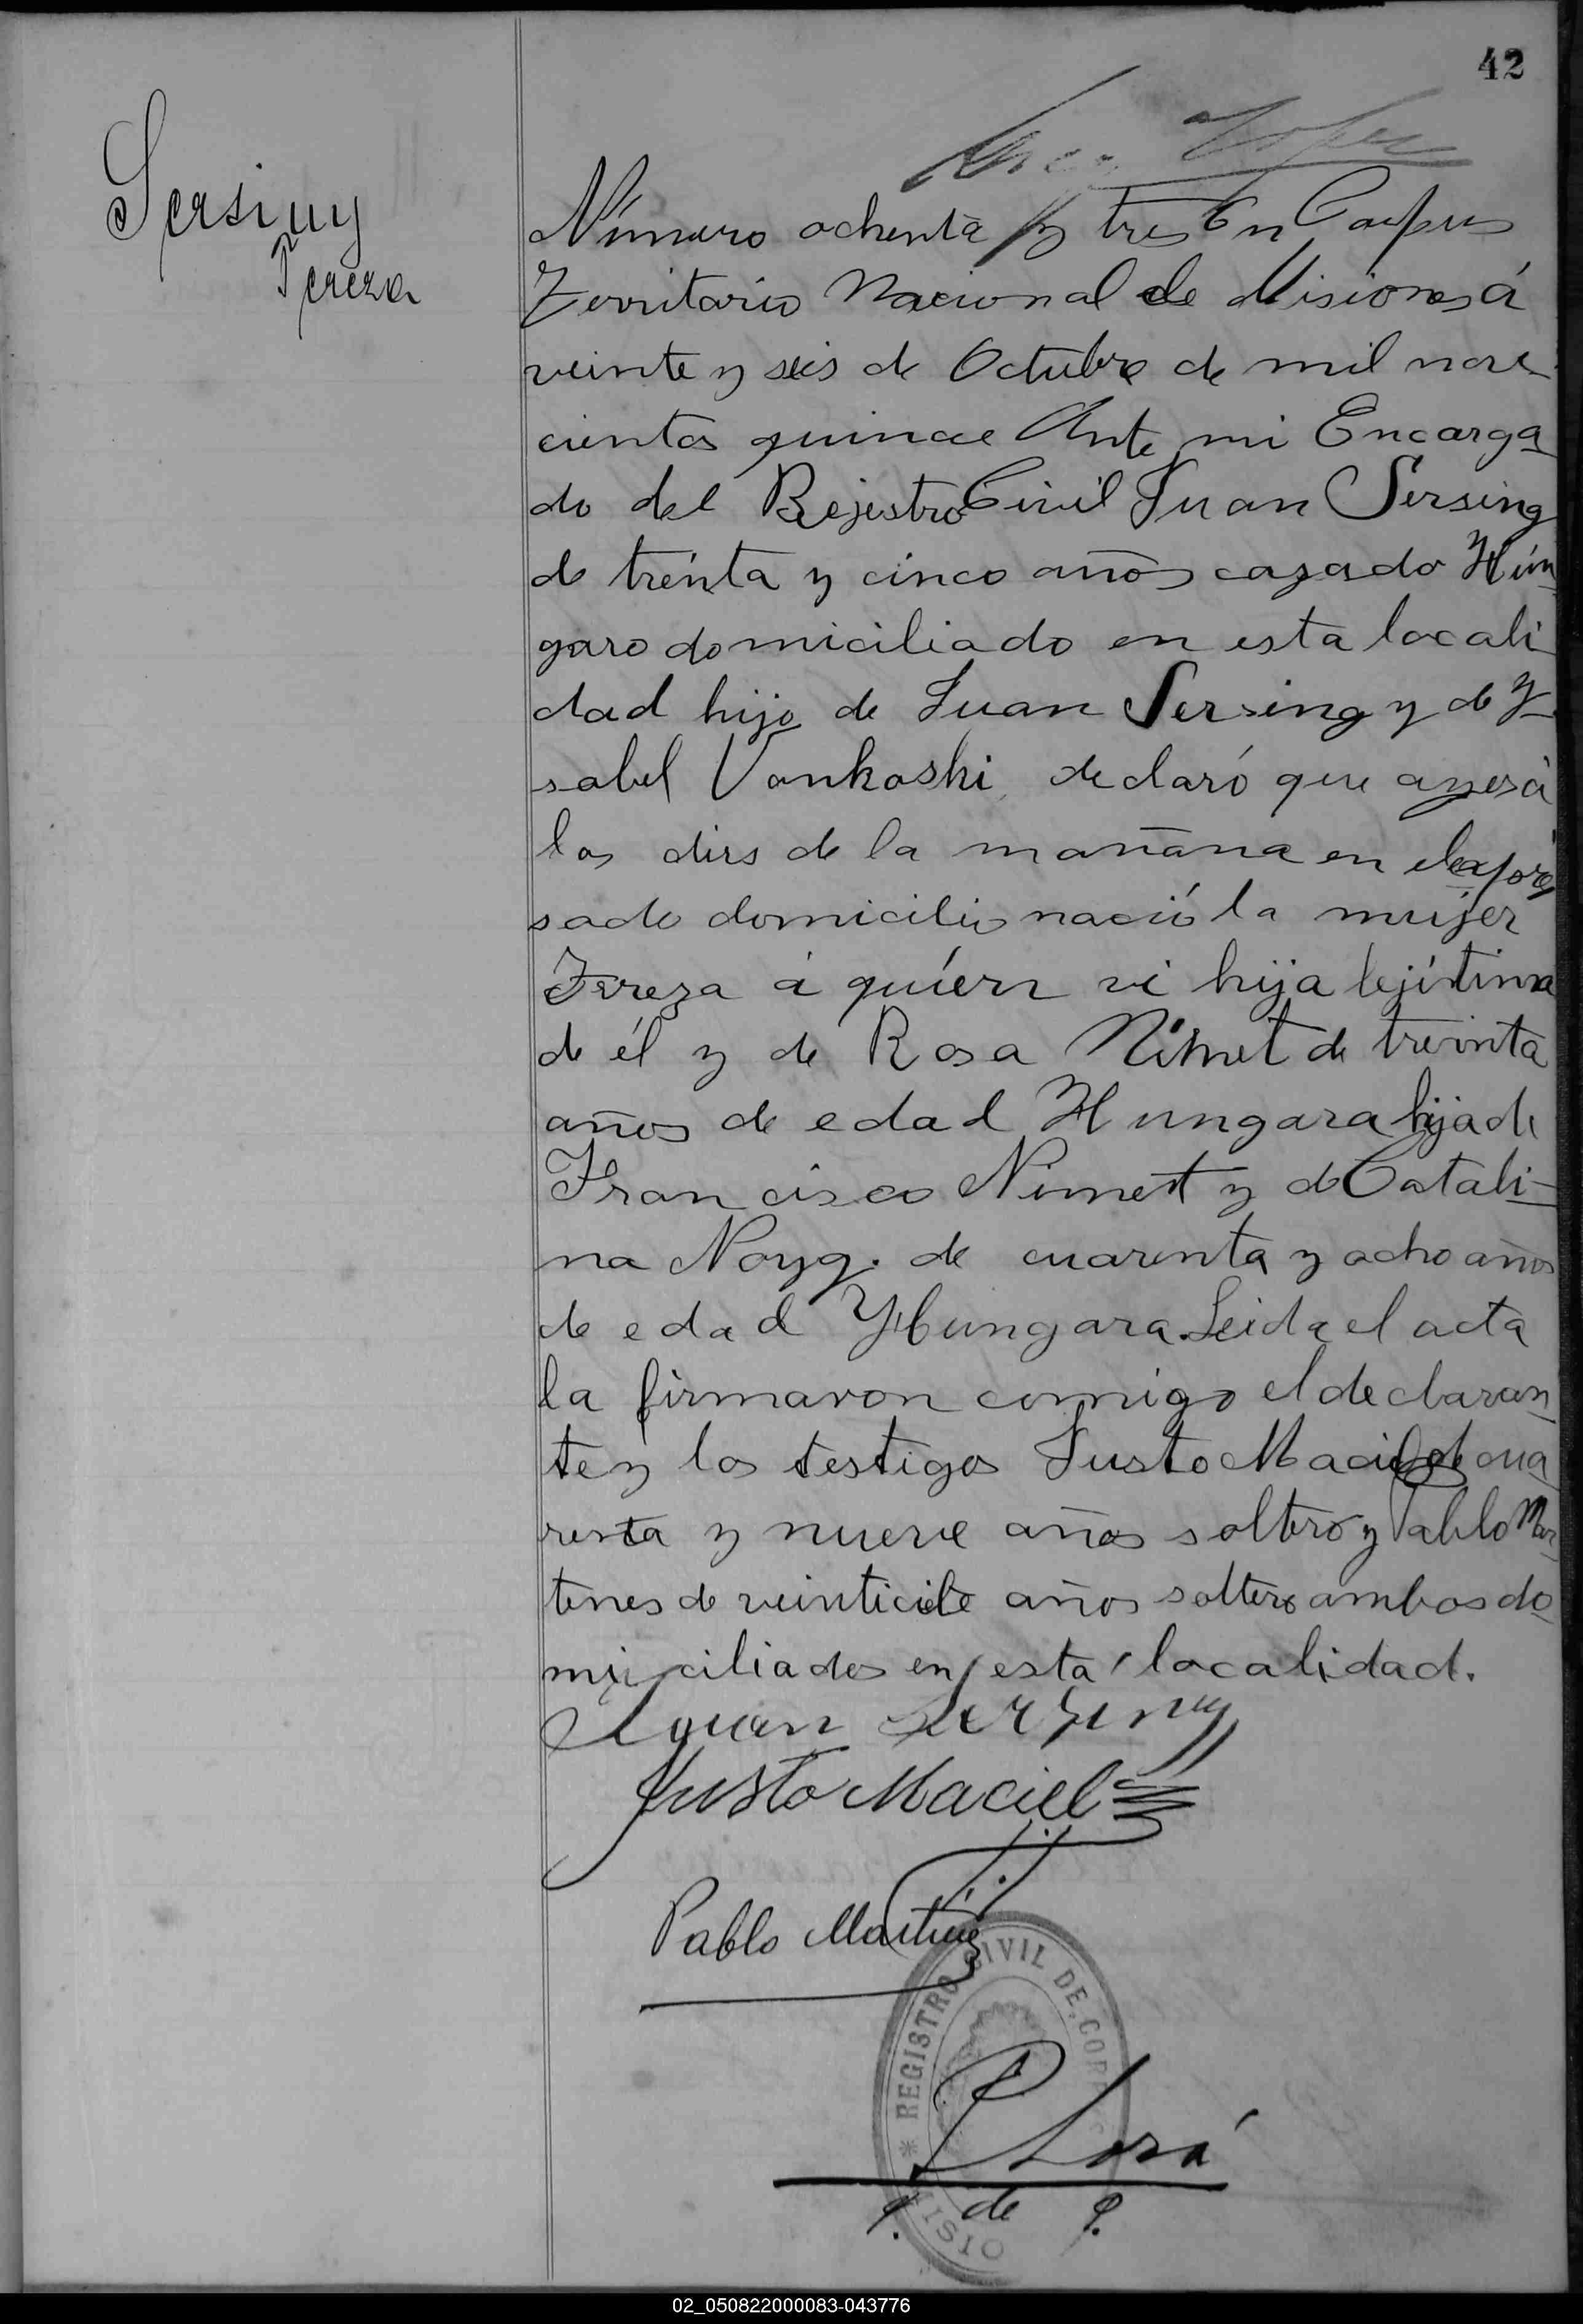 42
Sersiny
Tereza
Número ochenta y tres En Corpus
Territorio Nacional de Misiones á
veinte y seis de Octubre de mil nove-
cientos quince Ante mi Encarga-
do del Rejestro Civil Juan Sersing
de trenta y cinco años cazado Hún-
garo domiciliado en esta locali-
dad hijo de Juan Sersing y de Y-
sabel Vonkoski declaró que ayer á
las dies de la mañana en el expre-
sado domicilio nació la mujer
Tereza á quíen vi hija lejítima
de él y de Rosa Nimet de treinta
años de edad Hungara hija de
Francisco Nimet y de Catali-
na Noyg. de cuarenta y ocho años
de edad Hungara. Leida el acta
la firmaron comigo el declaran-
te y los testigos Justo Maciel de cua-
renta y nueve años soltero y Pablo Mar-
tines de veinticiete años soltero ambos do-
miciliados en esta localidad.
Juan Sersiny
Justo Maciel
Pablo Martinez
REGISTRO CIVIL DE COR
ISIO
J. de P.
02_050822000083-043776